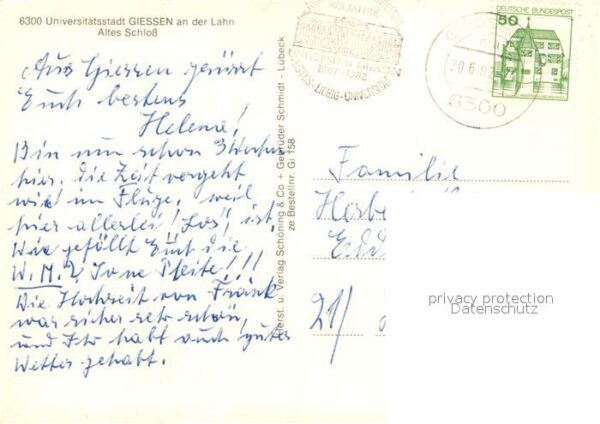 6300 Universitätsstadt GIESSEN an der Lahn
Altes Schloß
Aus Giessen grüsst
Euch bestens
Helene!
Bin nun schon 3 Wochen
hier, die Zeit vergeht
wie im Fluge, weil
hier allerlei "Los" ist
Wie gefällt Euch die
W.M.? So ne Pleite!!!
Die Hochzeit von Frank
war sicher sehr schön,
und Ihr habt auch gutes
Wetter gehabt.
Herst. u. Verlag Schöning & Co + Gebrüder Schmidt - Lübeck
Bestellnr. Gi 158
1607-1982
LIEBIG-UNIVERSITÄT
DEUTSCHE BUNDESPOST
50
20.6.8
6300
Familie
21/
privacy protection
Datenschutz